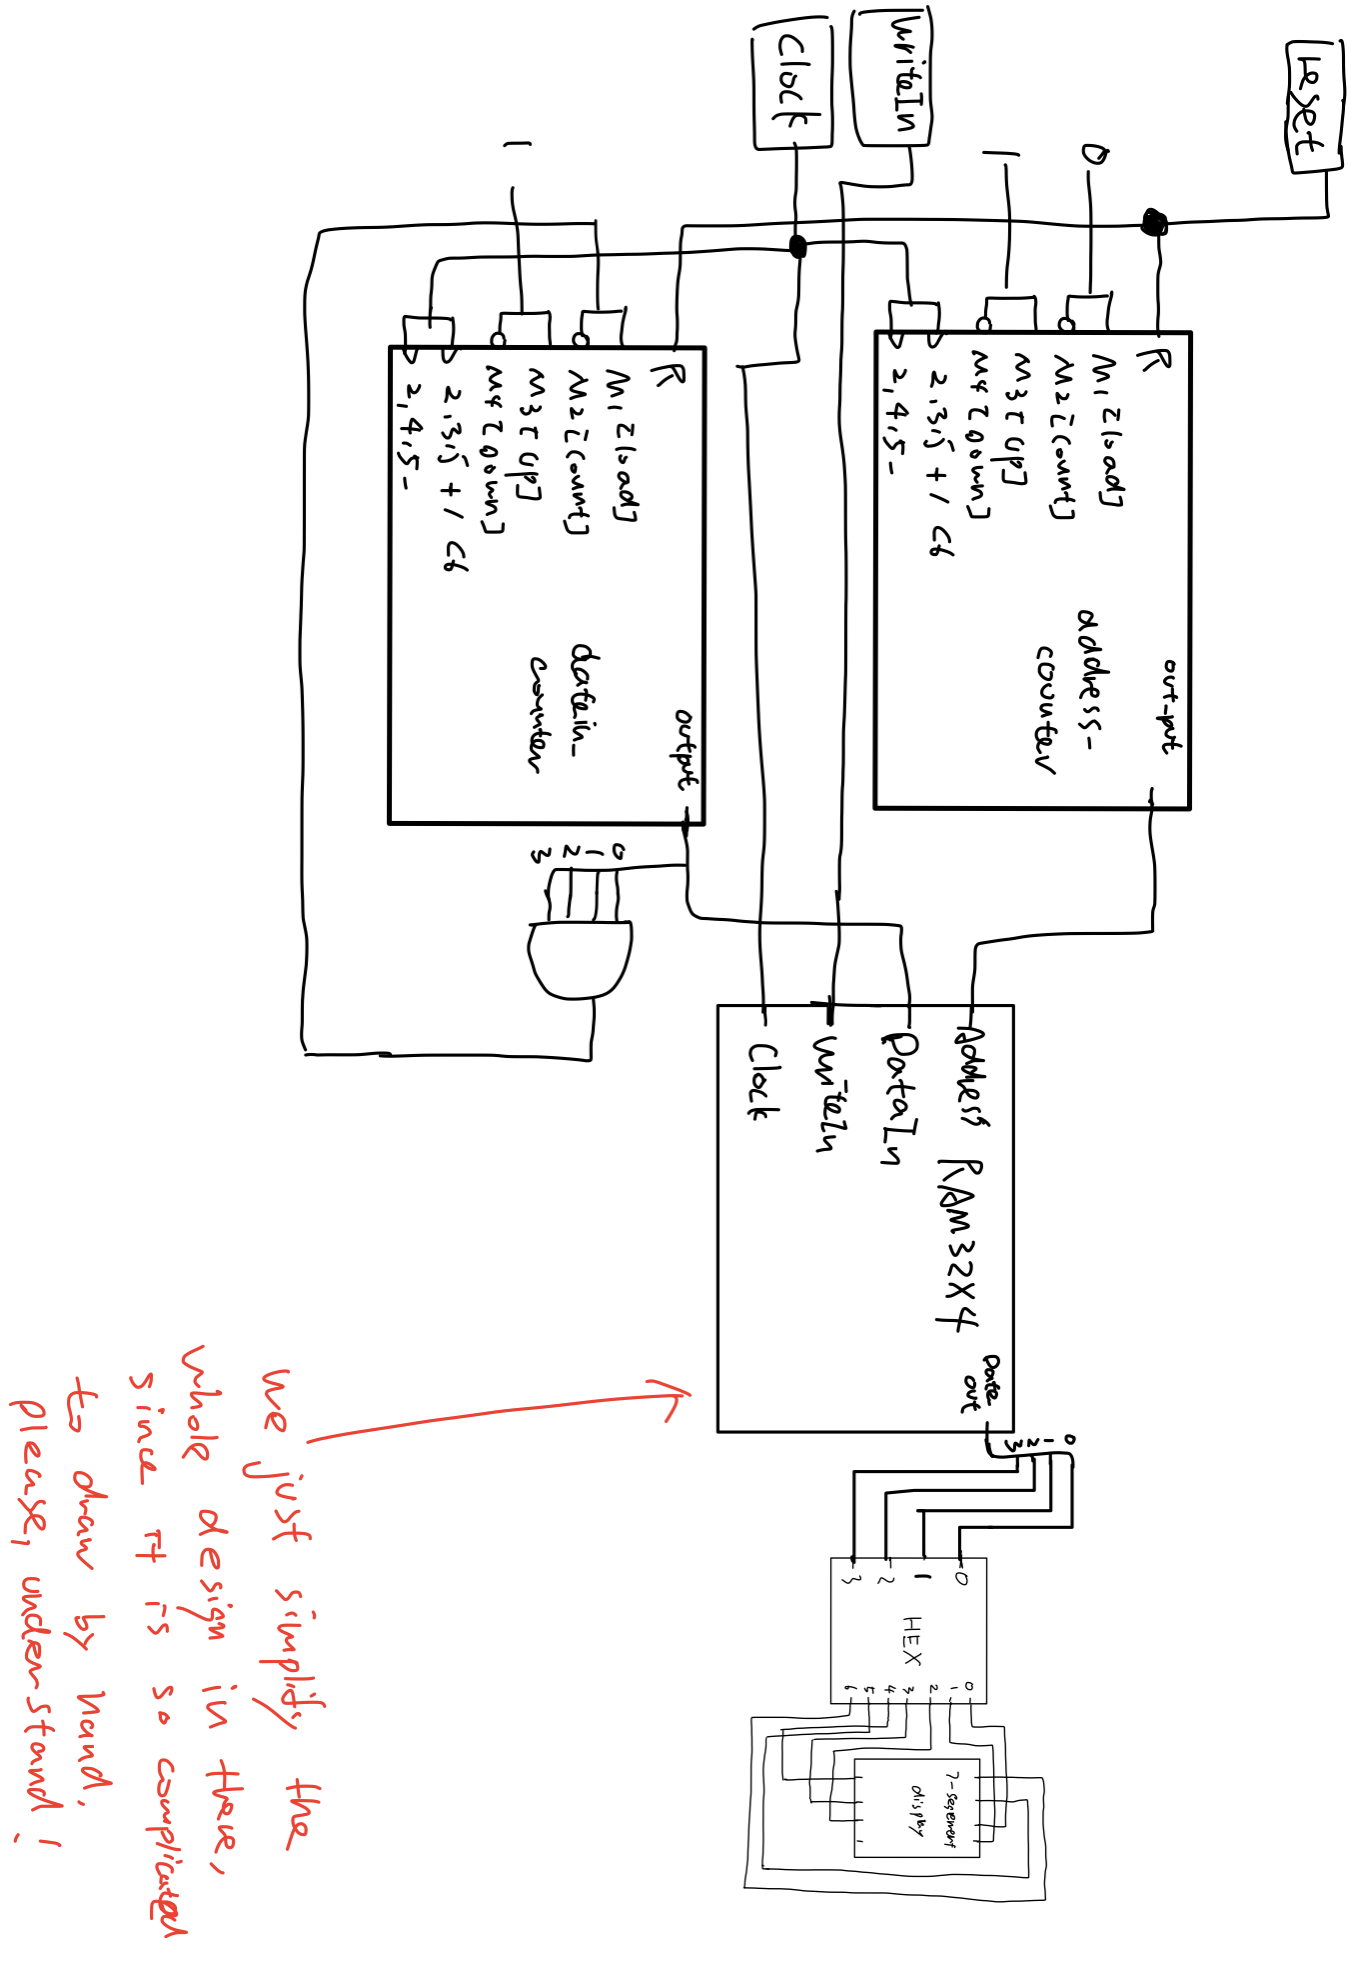 reset
0
1
R
M1 [load]
M2 [count]
M3 [up]
M4 [down]
2,3,5 + / C6
2,4,5 -
output
address-
counter
WriteIn
Clock
1
R
M1 [load]
M2 [count]
M3 [up]
M4 [down]
2,3,5 + / C6
2,4,5 -
output
datain-
counter
0
1
2
3
Address
DataIn
WriteIn
Clock
RAM32X4
Data
out
0
1
2
3
0
1
2
3
HEX
0
1
2
3
4
5
6
7-segement
display
we just simplify the
whole design in there,
since it is so complicated
to draw by hand.
please, understand !